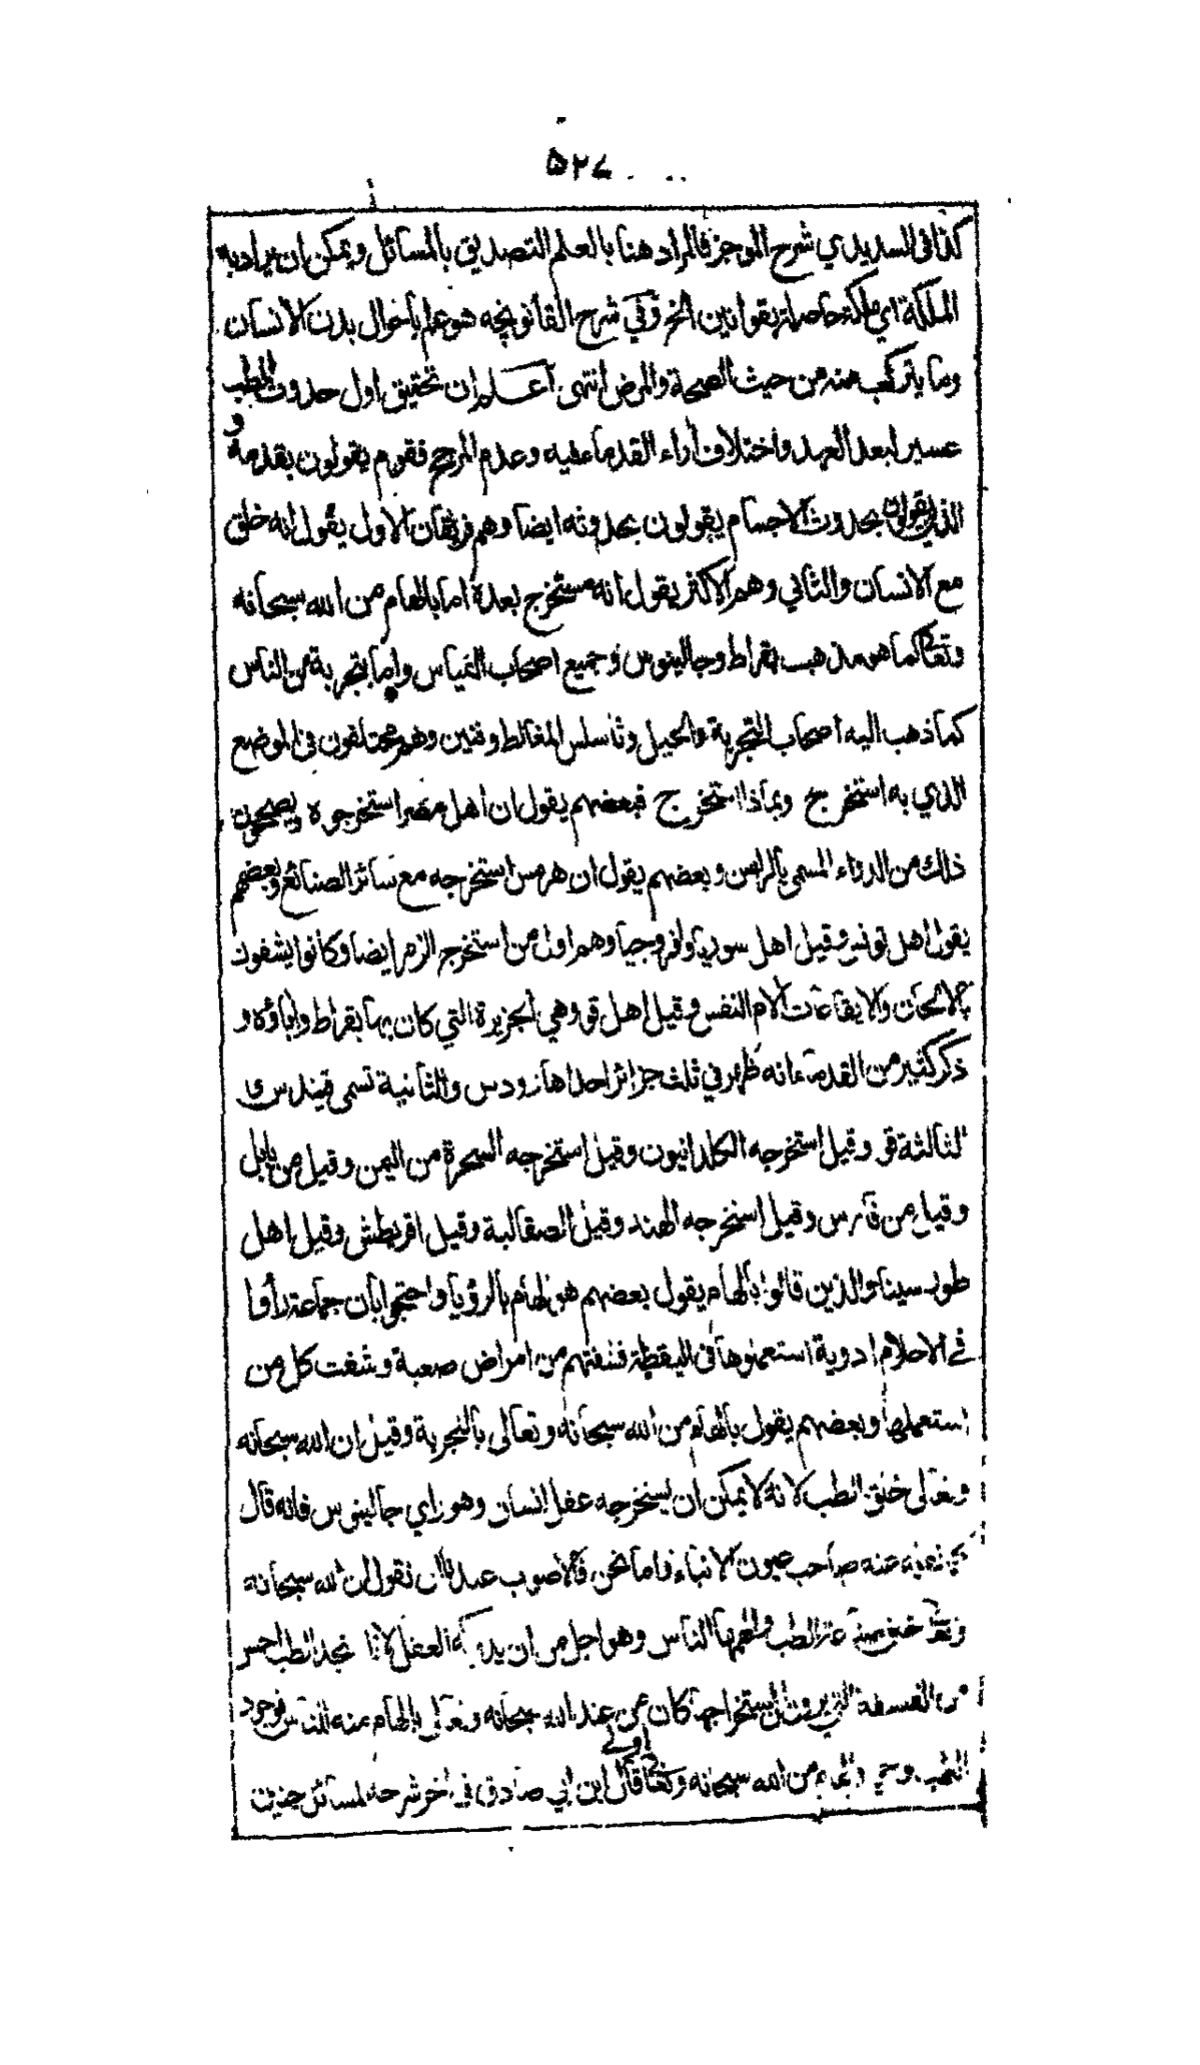 ۵۲۷
كذا في السديدي شرح الموجز فالمراد هنا بالعلم التصديق بالمسائل ويمكن ان يراد به
الملكة اي ملكة حاصلة بقوانين الخ وفي شرح القانونچه هو علم باحوال بدن الانسان
وما يتركب منه من حيث الصحة والمرض انتهى اعلم ان تحقيق اول حدوث الطب
عسير لبعد العهد واختلاف اراء القدماء عليه وعدم المرجح فقوم يقولون بقدمه و
الذين يقولون بحدوث الاجسام يقولون بحدوثه ايضا وهم فريقان الاول يقول انه خلق
مع الانسان والثاني وهم الاكثر يقول انه مستخرج بعده اما بالهام من الله سبحانه
وتعالى كما هو مذهب بقراط وجالينوس وجميع اصحاب القياس واما بتجربة من الناس
كما ذهب اليه اصحاب التجربة والحيل وثاسلس المغالط وفنين وهم مختلفون في الموضع
الذي به استخرج وبماذا استخرج فبعضهم يقول ان اهل مصر استخرجوه ويصححون
ذلك من الدواء المسمى بالراسن وبعضهم يقول ان هرمس استخرجه مع سائر الصنائع وبعضهم
يقول اهل تونس وقيل اهل سوريا وافروجيا وهم اول من استخرج الزمر ايضا وكانوا يشفون
بالالحان والايقاعات الام النفس وقيل اهل قو وهي الجزيرة التي كان بها بقراط واباؤه و
ذكر كثير من القدماء انه ظهر في ثلث جزائر احداها رودس والثانية تسمى قنيدس و
الثالثة قو وقيل استخرجه الكلدانيون وقيل استخرجه السحرة من اليمن وقيل من بابل
وقيل من فارس وقيل استخرجه الهند وقيل الصقالبة وقيل اقريطش وقيل اهل
طور سينا والذين قالوا بالهام يقول بعضهم هو الهام بالرؤيا واحتجوا بان جماعة رأوا
في الاحلام ادوية استعملوها في اليقظة فشفتهم من امراض صعبة وشفت كل من
استعملها وبعضهم يقول بالهام من الله سبحانه وتعالى بالتجربة وقيل ان الله سبحانه
وتعالى خلق الطب لانه لا يمكن ان يستخرجه عقل انسان وهو راي جالينوس فانه قال
كما نقله عنه صاحب عيون الانباء واما نحن فالاصوب عندنا ان نقول ان الله سبحانه
وتعالى خلق صناعة الطب والهمها الناس وهو اجل من ان يدركه العقل لانا نجد الطب احسن
من الفلسفة التي يرون ان استخراجها كان من عند الله سبحانه وتعالى بالهام منه للناس فوجود
الطب بوحي والهام من الله سبحانه وتعالى اولى قال ابن ابي صادق في اخر شرحه لمسائل حنين